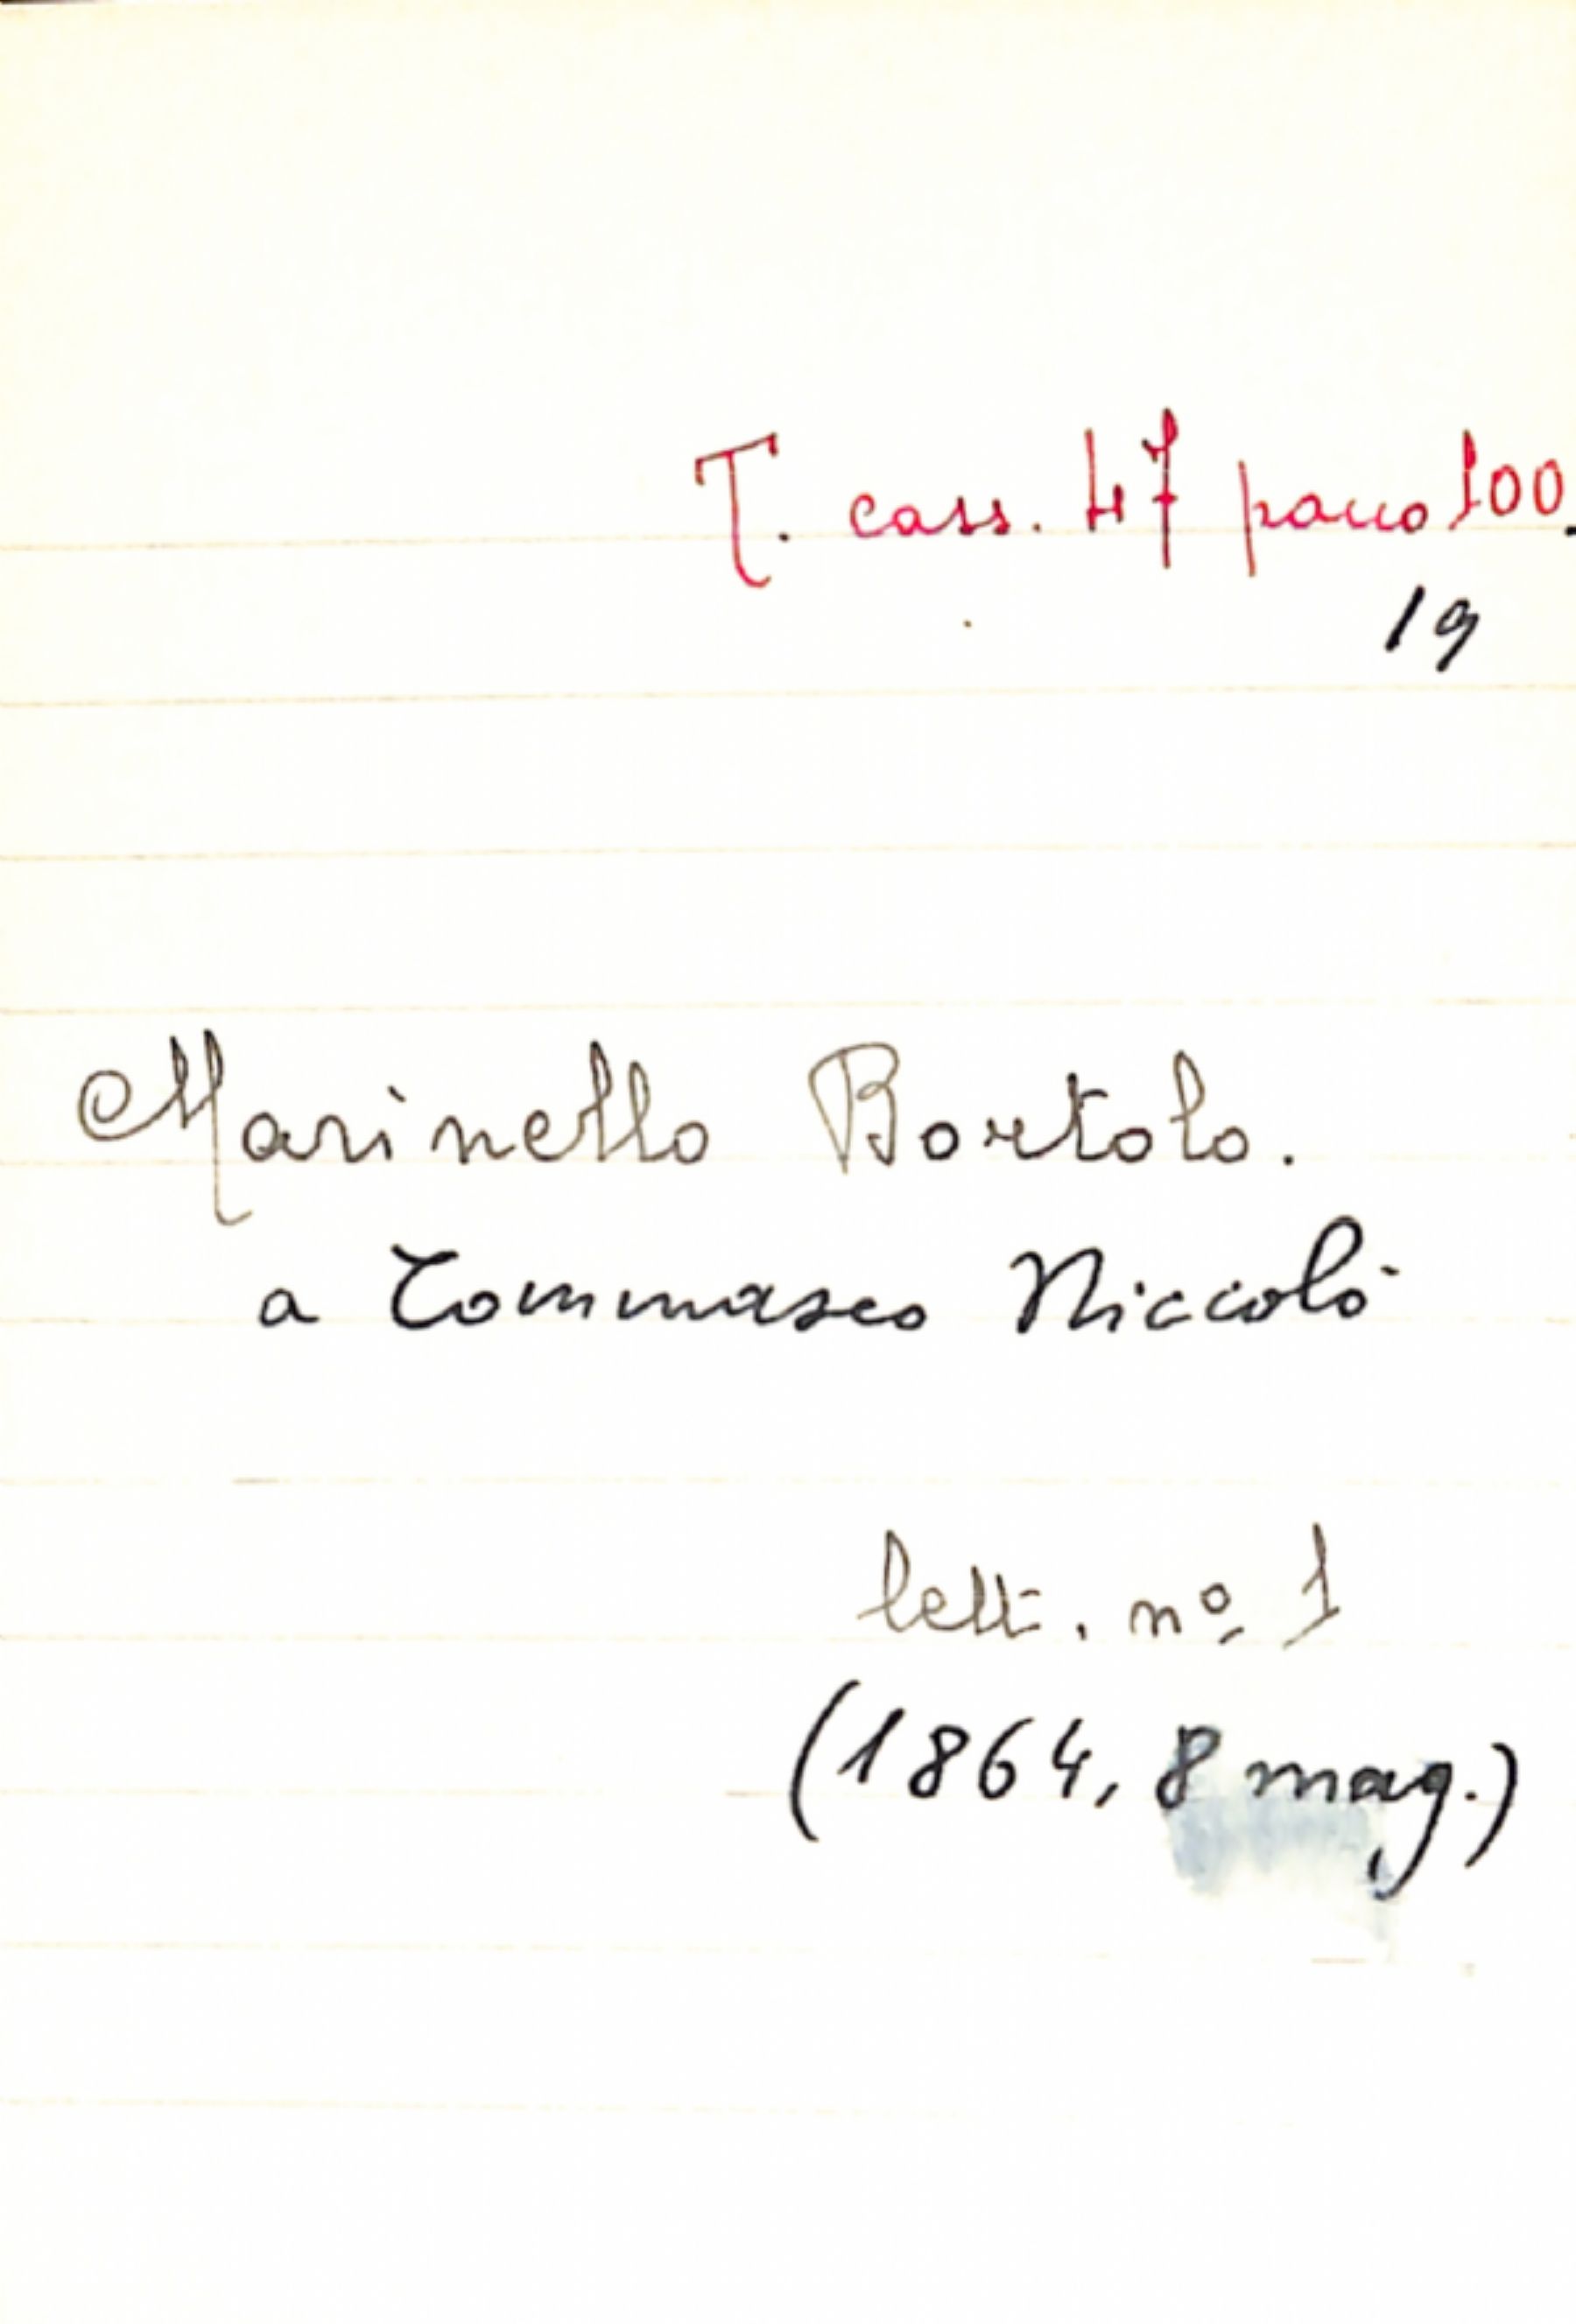 T. cass. 47 pacco 100.
19
Marinello Bortolo.
a Tommaseo Niccolò
lett. nº 1
(1864, 8 mag.)